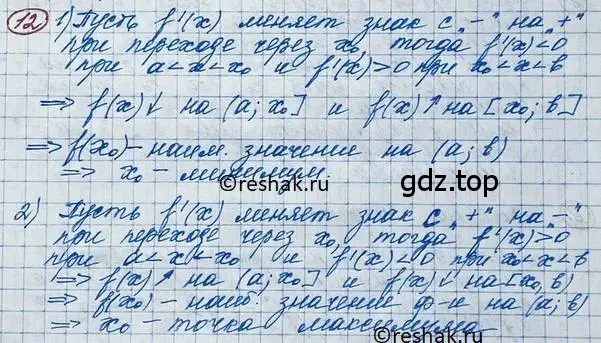 12 1) Пусть f'(x) меняет знак с „-" на „+"
при переходе через x₀, тогда f'(x)<0
при a<x<x₀ и f'(x)>0 при x₀<x<b
⇒ f(x)↓ на (a; x₀] и f(x)↑ на [x₀; b]
⇒ f(x₀) – наим. значение на (a; b)
⇒ x₀ – минимум
©reshak.ru
gdz.top
2) Пусть f'(x) меняет знак с „+" на „-"
при переходе через x₀, тогда f'(x)>0
при a<x<x₀ и f'(x)<0 при x₀<x<b
⇒ f(x)↑ на (a; x₀] и f(x)↓ на [x₀, b)
⇒ f(x₀) – наиб. значение ф-и на (a; b)
⇒ x₀ – точка максимума
©reshak.ru